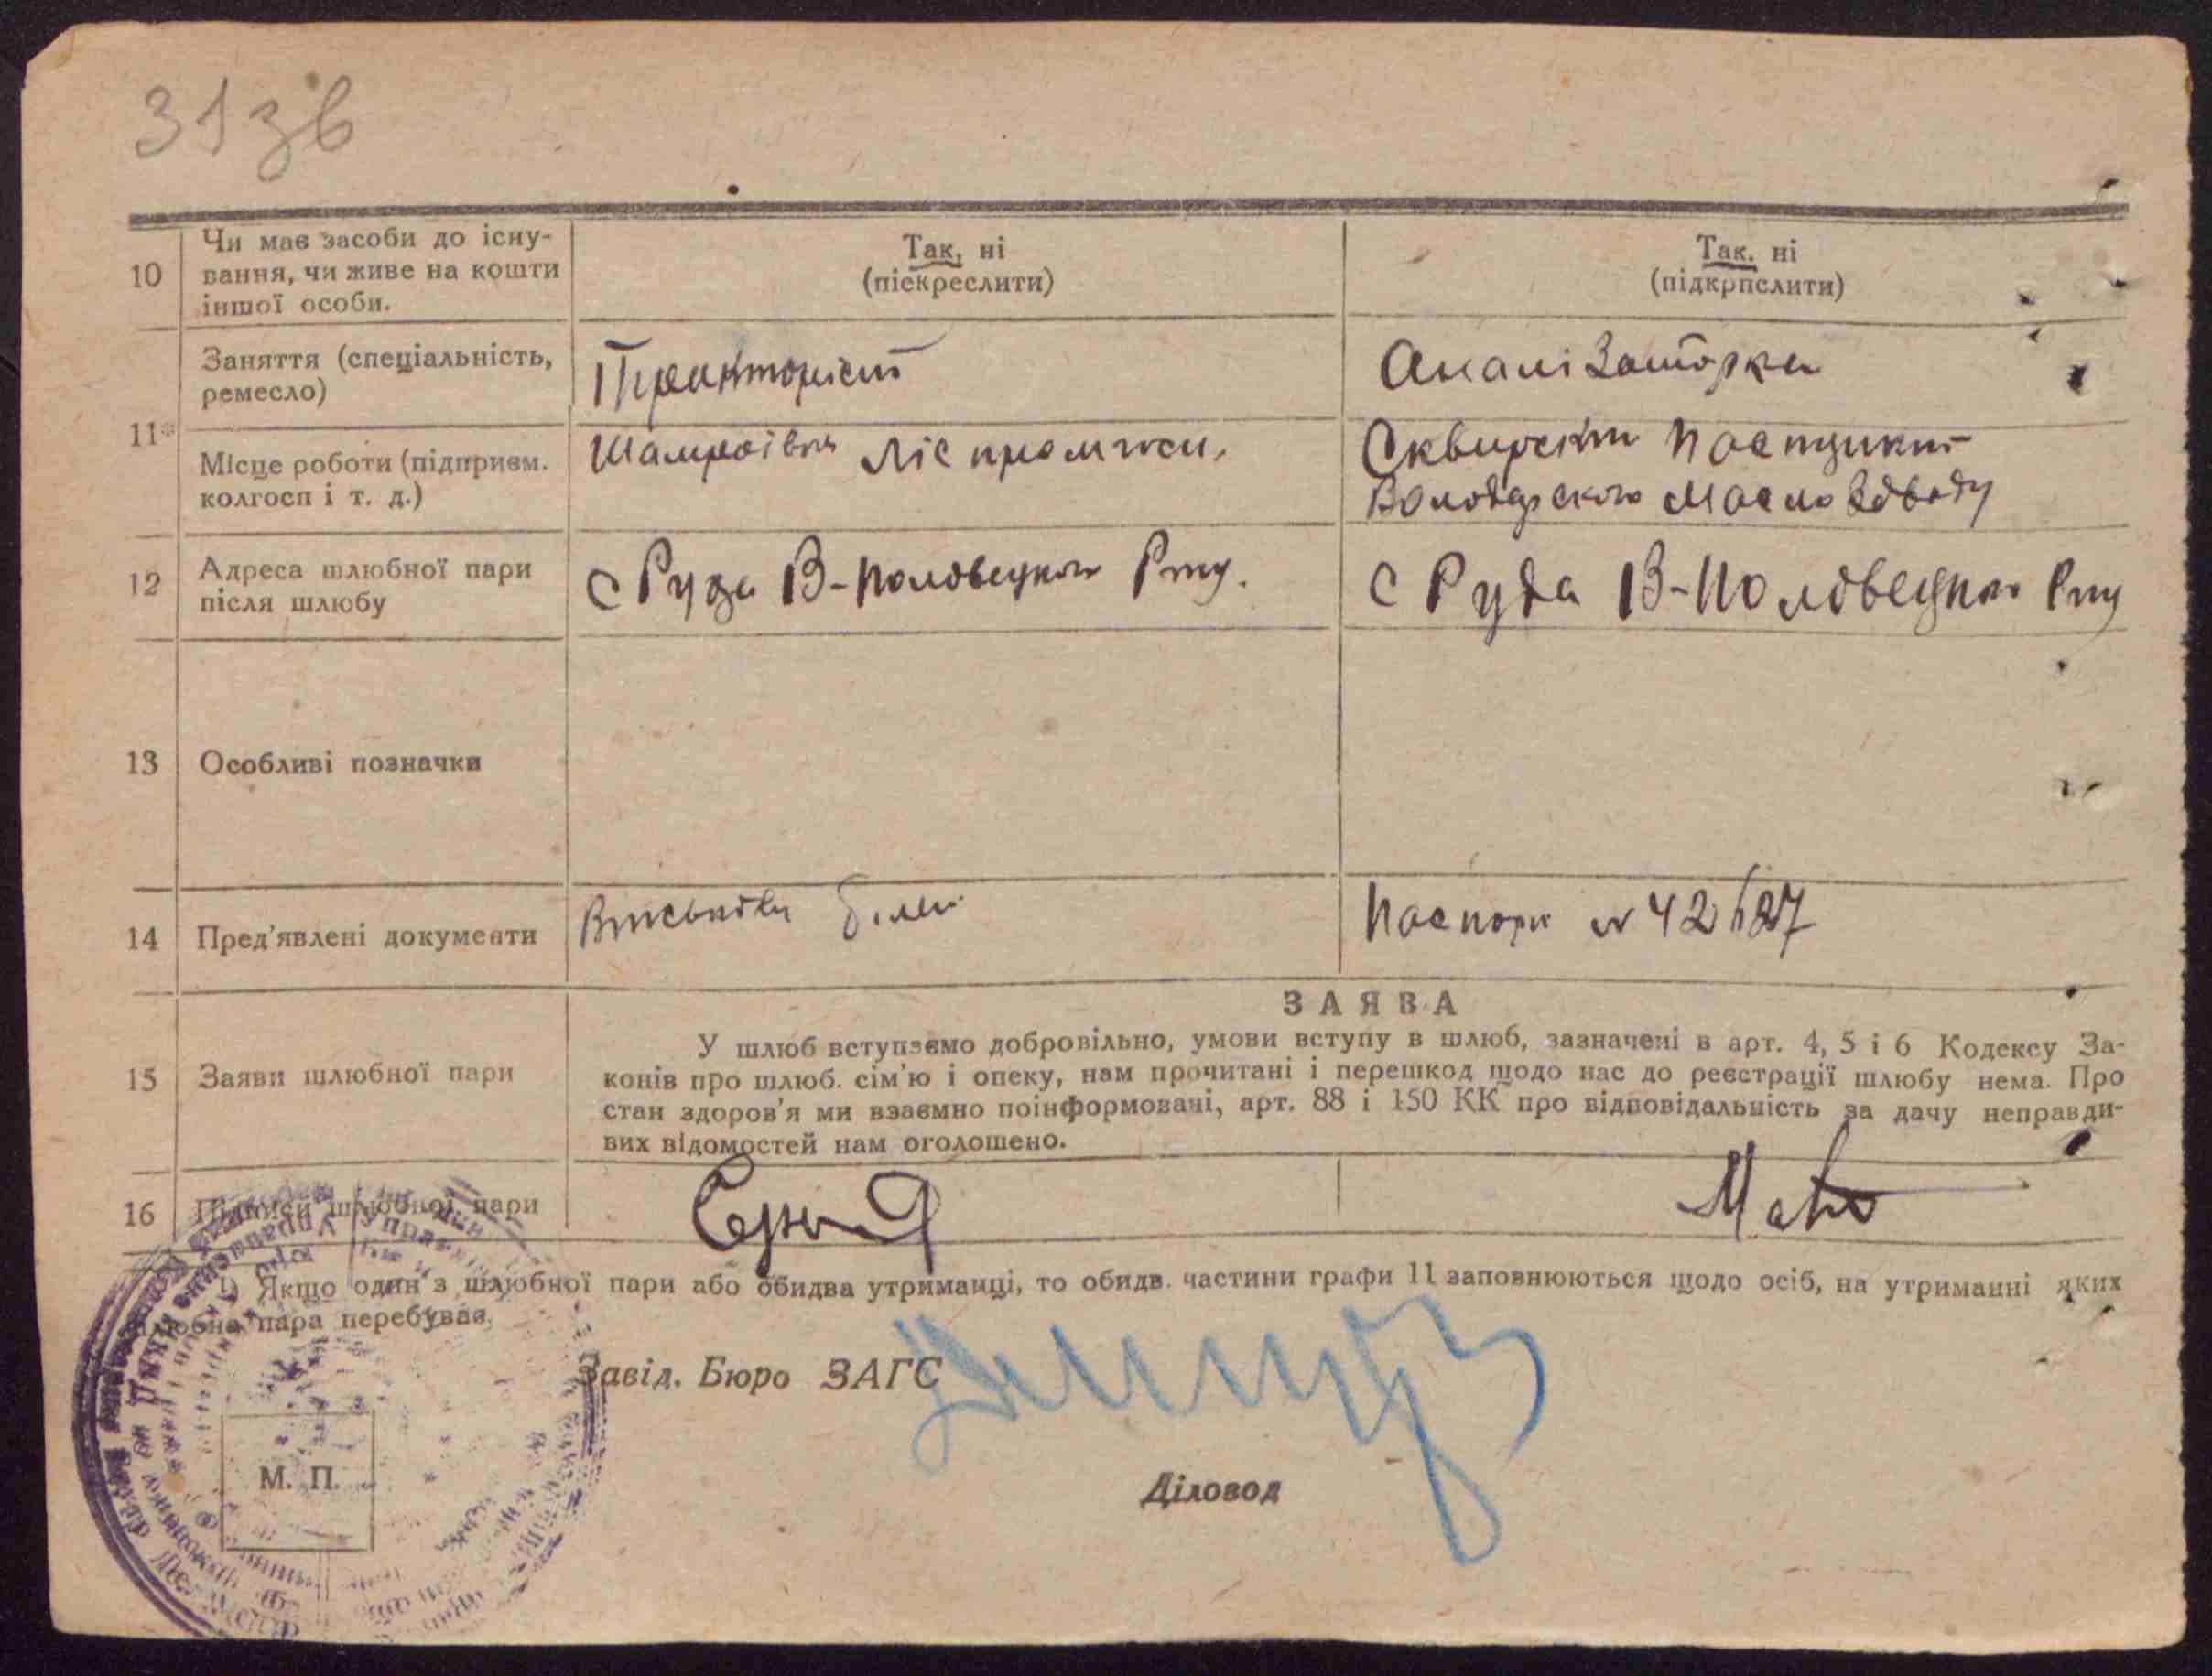 31зв
10
Чи має засоби до існу-
вання, чи живе на кошти
іншої особи.
Так, ні
(піекреслити)
Так. ні
(підкрпслити)
11*
Заняття (спеціальність,
ремесло)
Тракторист
Аналізаторка
Місце роботи (підприєм.
колгосп і т. д.)
Шамраївка
Сквирскій
Володарского Маслозаводу
12
Адреса шлюбної пари
після шлюбу
с Руда В-Половецкого Р-ну.
с Руда В-Половецкого Р-ну
13
Особливі позначки
14
Пред'явлені документи
Військови білет
Паспорт №
15
Заяви шлюбної пари
ЗАЯВА
У шлюб вступаємо добровільно, умови вступу в шлюб, зазначені в арт. 4, 5 і 6 Кодексу За-
конів про шлюб. сім'ю і опеку, нам прочитані і перешкод щодо нас до реєстрації шлюбу нема. Про
стан здоров'я ми взаємно поінформовані, арт. 88 і 150 КК про відповідальність за дачу неправди-
вих відомостей нам оголошено.
16
Підписи шлюбної пари
1) Якщо один з шлюбної пари або обидва утриманці, то обидв. частини графи 11 заповнюються щодо осіб, на утриманні яких
шлюбна пара перебуває.
Завід. Бюро ЗАГС
М. П.
Діловод